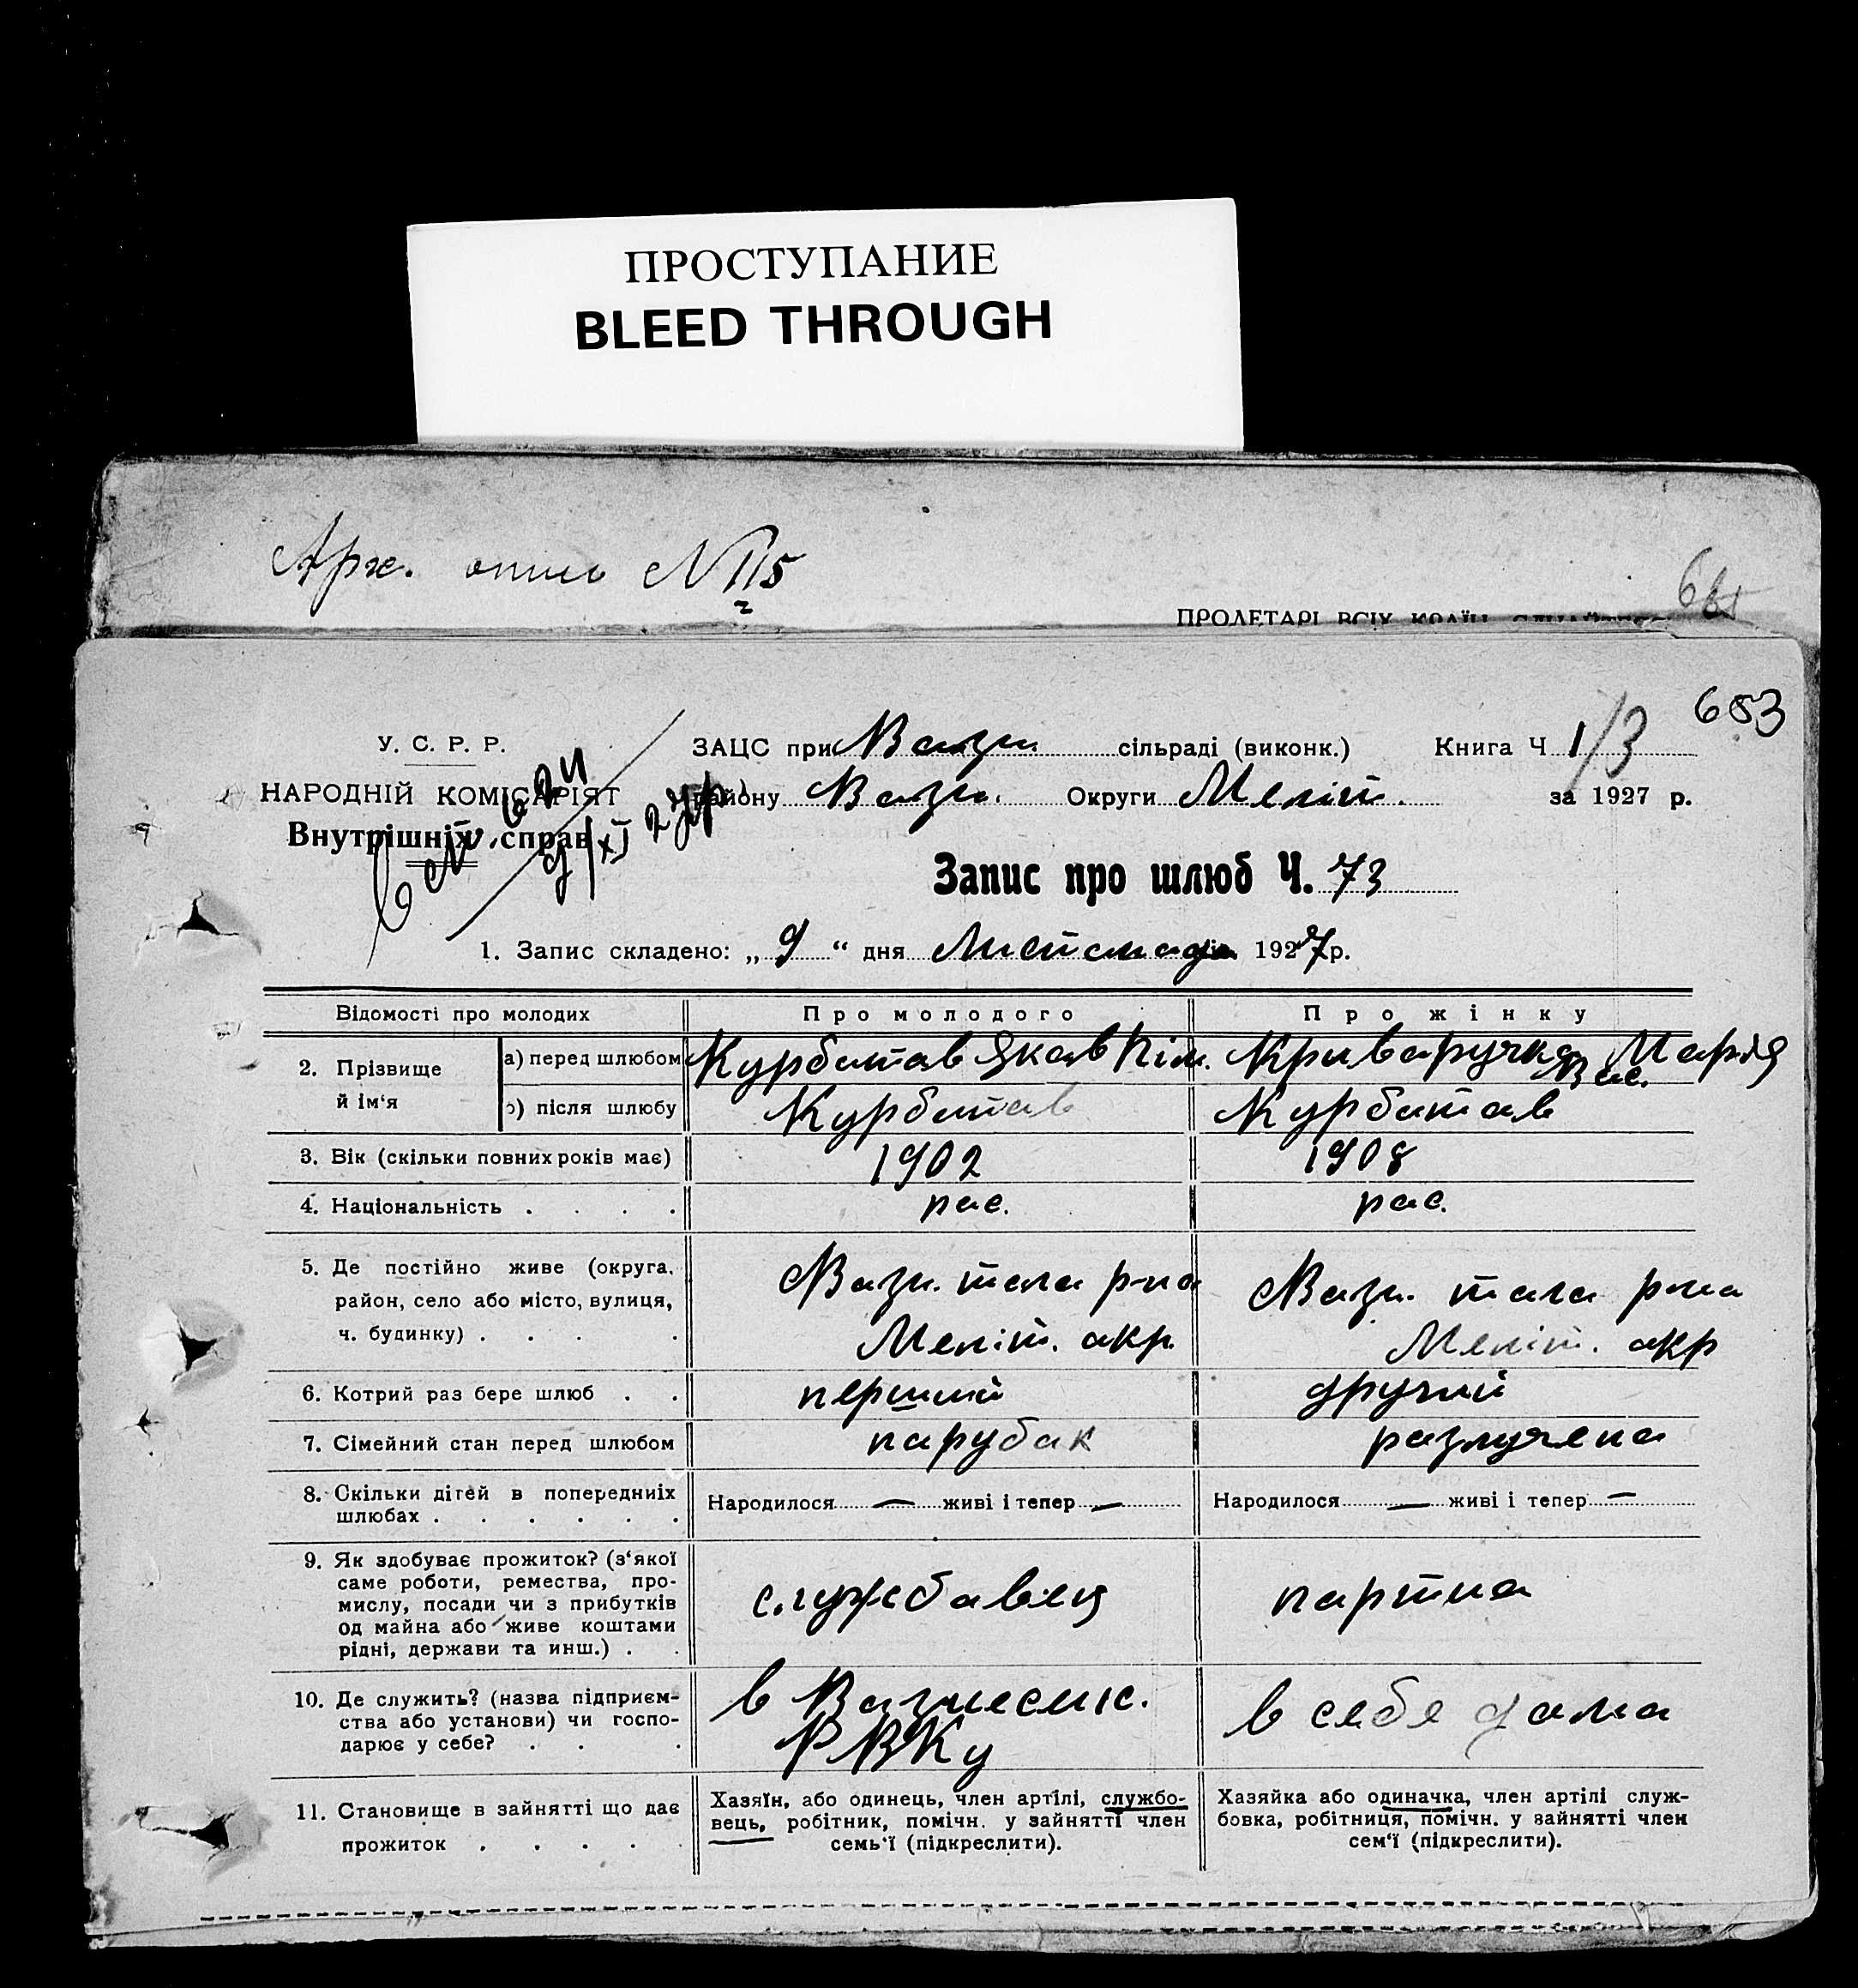 ПРОСТУПАНИЕ
BLEED THROUGH
Арх. опись № 115
2
ПРОЛЕТАРІ ВСІХ КРАЇН, ЄДНАЙТЕСЬ
683
У. С. Р. Р.
НАРОДНІЙ КОМІСАРІЯТ
Внутрішніх справ
9/XI 27 р
ЗАЦС при Вазн сільраді (виконк.) Книга Ч 1/3
району Вазн. Округи Меліт. за 1927 р.
Запис про шлюб Ч. 73
1. Запис складено: „ 9 “ дня Листопада 1927 р.
Відомості про молодих
Про молодого
Про жінку
2. Прізвище й ім‘я
а) перед шлюбом
Курбатав Якав Пім.
Криваручка Марія Вас.
б) після шлюбу
Курбатав
Курбатав
3. Вік (скільки повних років має)
1902
1908
4. Національність . . . .
рас.
рас.
5. Де постійно живе (округа,
район, село або місто, вулиця,
ч. будинку) . . . .
Вазн. тога р-на
Меліт. акр.
Вазн. тога р-на
Меліт. акр
6. Котрий раз бере шлюб . .
перший
другий
7. Сімейний стан перед шлюбом
парубак
разлучена
8. Скільки дітей в попередниіх
шлюбах . . . . . .
Народилося — живі і тепер —
Народилося — живі і тепер —
9. Як здобуває прожиток? (з‘якої
саме роботи, ремества, про-
мислу, посади чи з прибутків
од майна або живе коштами
рідні, держави та инш.) . .
службавец
партна
10. Де служить? (назва підприєм-
ства або установи) чи госпо-
дарює у себе? . . .
в Вазнесенс.
РВКу
в себе дама
11. Становище в зайнятті що дає
прожиток . . . . .
Хазяїн, або одинець, член артілі, службо-
вець, робітник, помічн. у зайнятті член
семь‘ї (підкреслити).
Хазяйка або одиначка, член артілі служ-
бовка, робітниця, помічн. у зайнятті член
сем‘ї (підкреслити).